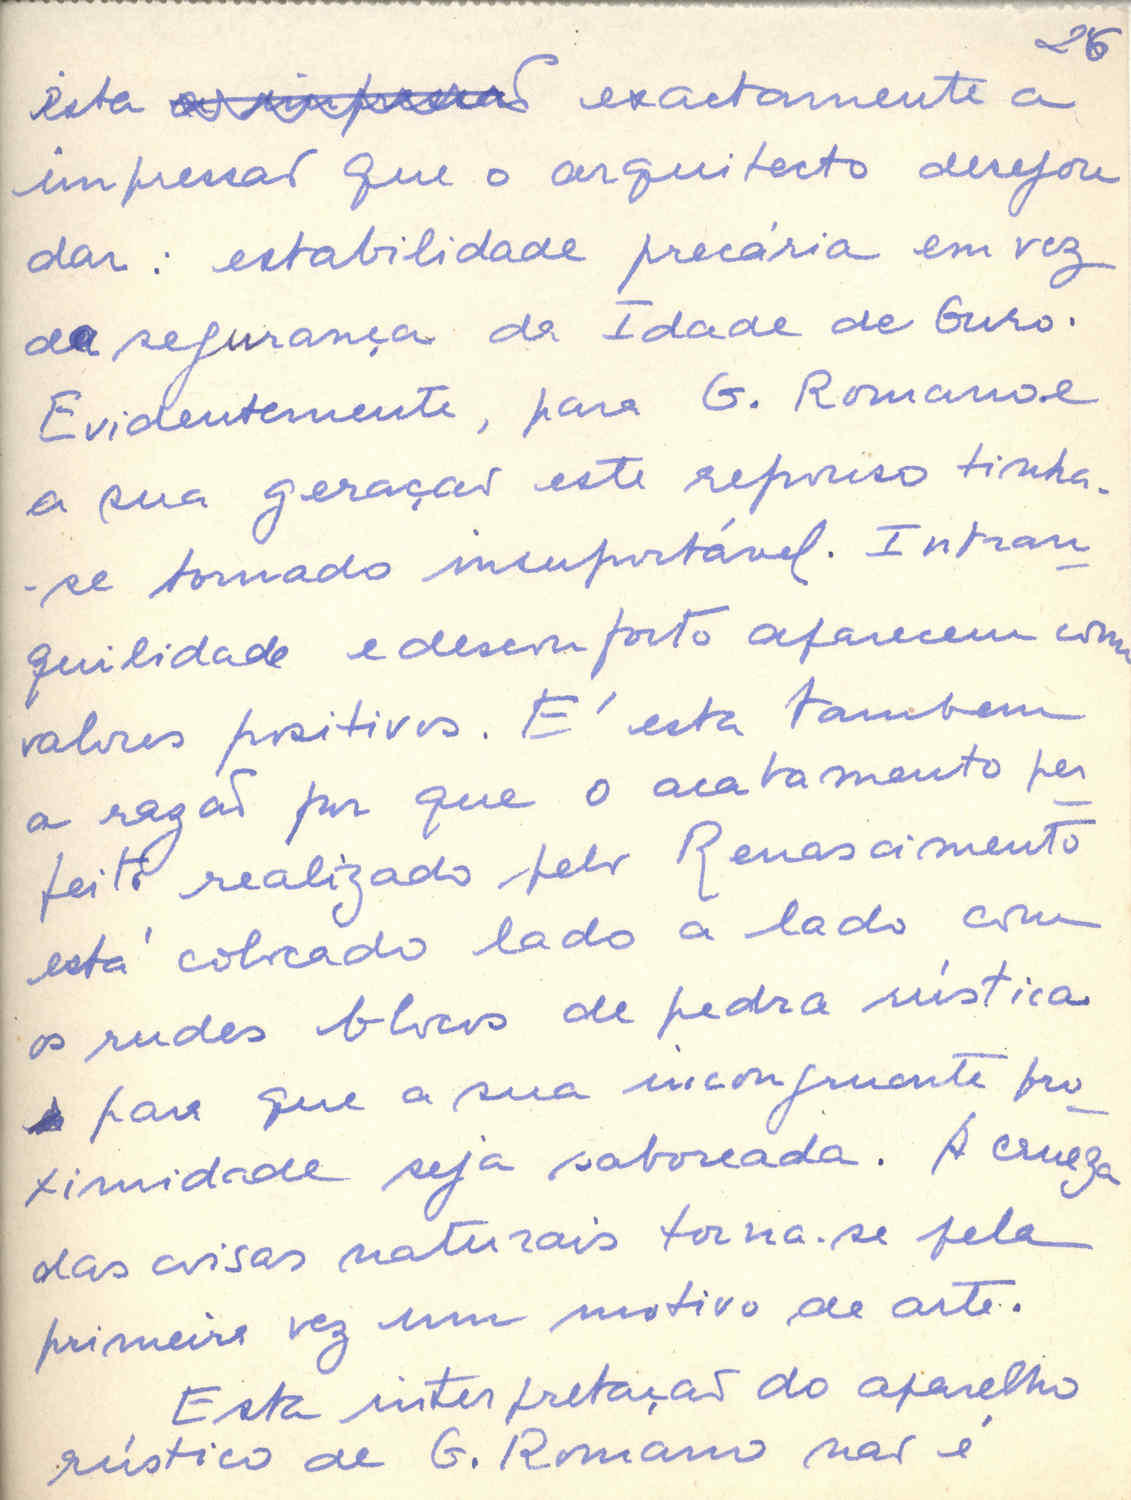 26
ésta exactamente a
impressão que o arquitecto desejou
dar: estabilidade precária em vez
da segurança da Idade de Ouro.
Evidentemente, para G. Romano e
a sua geração este repouso tinha-
-se tornado insuportável. Intran-
quilidade e desconforto aparecem com
valores positivos. E' esta tambem
a razão por que o acabamento per-
feito realizado pelo Renascimento
está colocado lado a lado com
os rudes blocos de pedra rústica
para que a sua incongruente pro-
ximidade seja saboreada. A crueza
das coisas naturais torna-se pela
primeira vez um motivo de arte.
Esta interpretação do aparelho
rústico de G. Romano não é